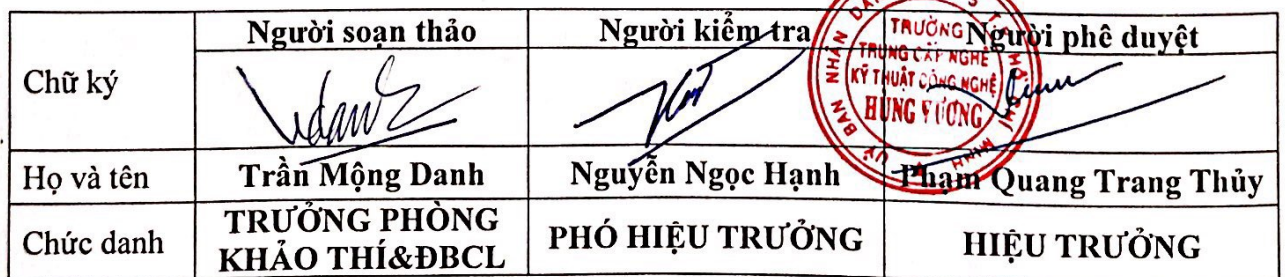 Người soạn thảo Người kiểm tra Người phê duyệt
Chữ ký
TRƯỜNG
TRUNG CẤP NGHỀ
KỸ THUẬT CÔNG NGHỆ
HÙNG VƯƠNG
Họ và tên Trần Mộng Danh Nguyễn Ngọc Hạnh Phạm Quang Trang Thủy
Chức danh TRƯỞNG PHÒNG KHẢO THÍ&ĐBCL PHÓ HIỆU TRƯỞNG HIỆU TRƯỞNG